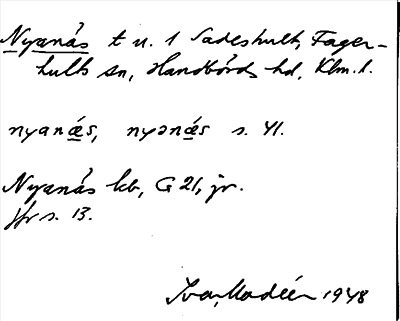 Nyanäs t u. 1 Sadeshult, Fager-
hults sn, Handbörds hd, Klm. l.
nyanæs, nyənæs s. 41.
Nyanäs kb, G 21, jr.
Jfr s. 13.
Ivar Modéer 1948